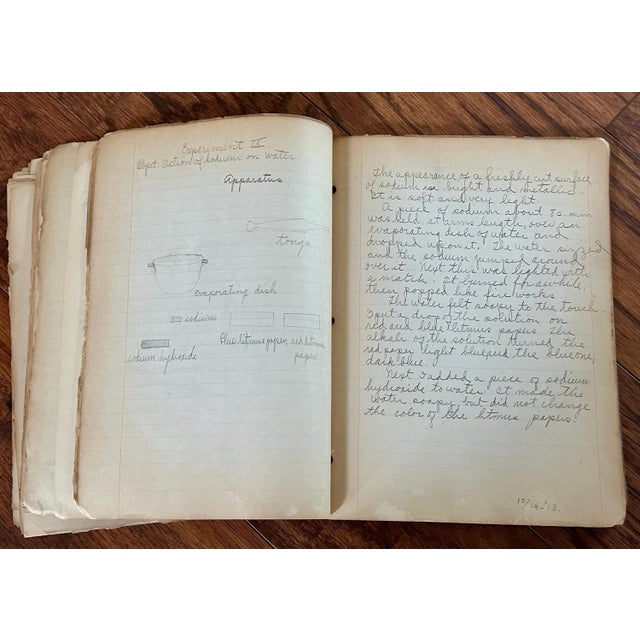 Experiment IX
Object. Action of sodium on water
Apparatus
tongs
evaporating dish
sodium
Blue litmus paper, red litmus
paper
sodium hydroxide
The appearance of a freshly cut surface
of sodium is bright and metallic.
It is soft and very light
A piece of sodium about 8 c. mm
was held, at arms length, over an
evaporating dish of water and
dropped upon it. The water sizzed
and the sodium jumped around
over it. Next this was lighted with
a match. It burned for awhile
then popped like fire works
The water felt soapy to the touch.
I put a drop of the solution on
red and blue litmus papers. The
alkali of the solution turned the
red paper light blue, the blue one,
dark blue.
Next I added a piece of sodium
hydroxide to water. It made the
water soapy but did not change
the color of the litmus papers.
10/14-'13.